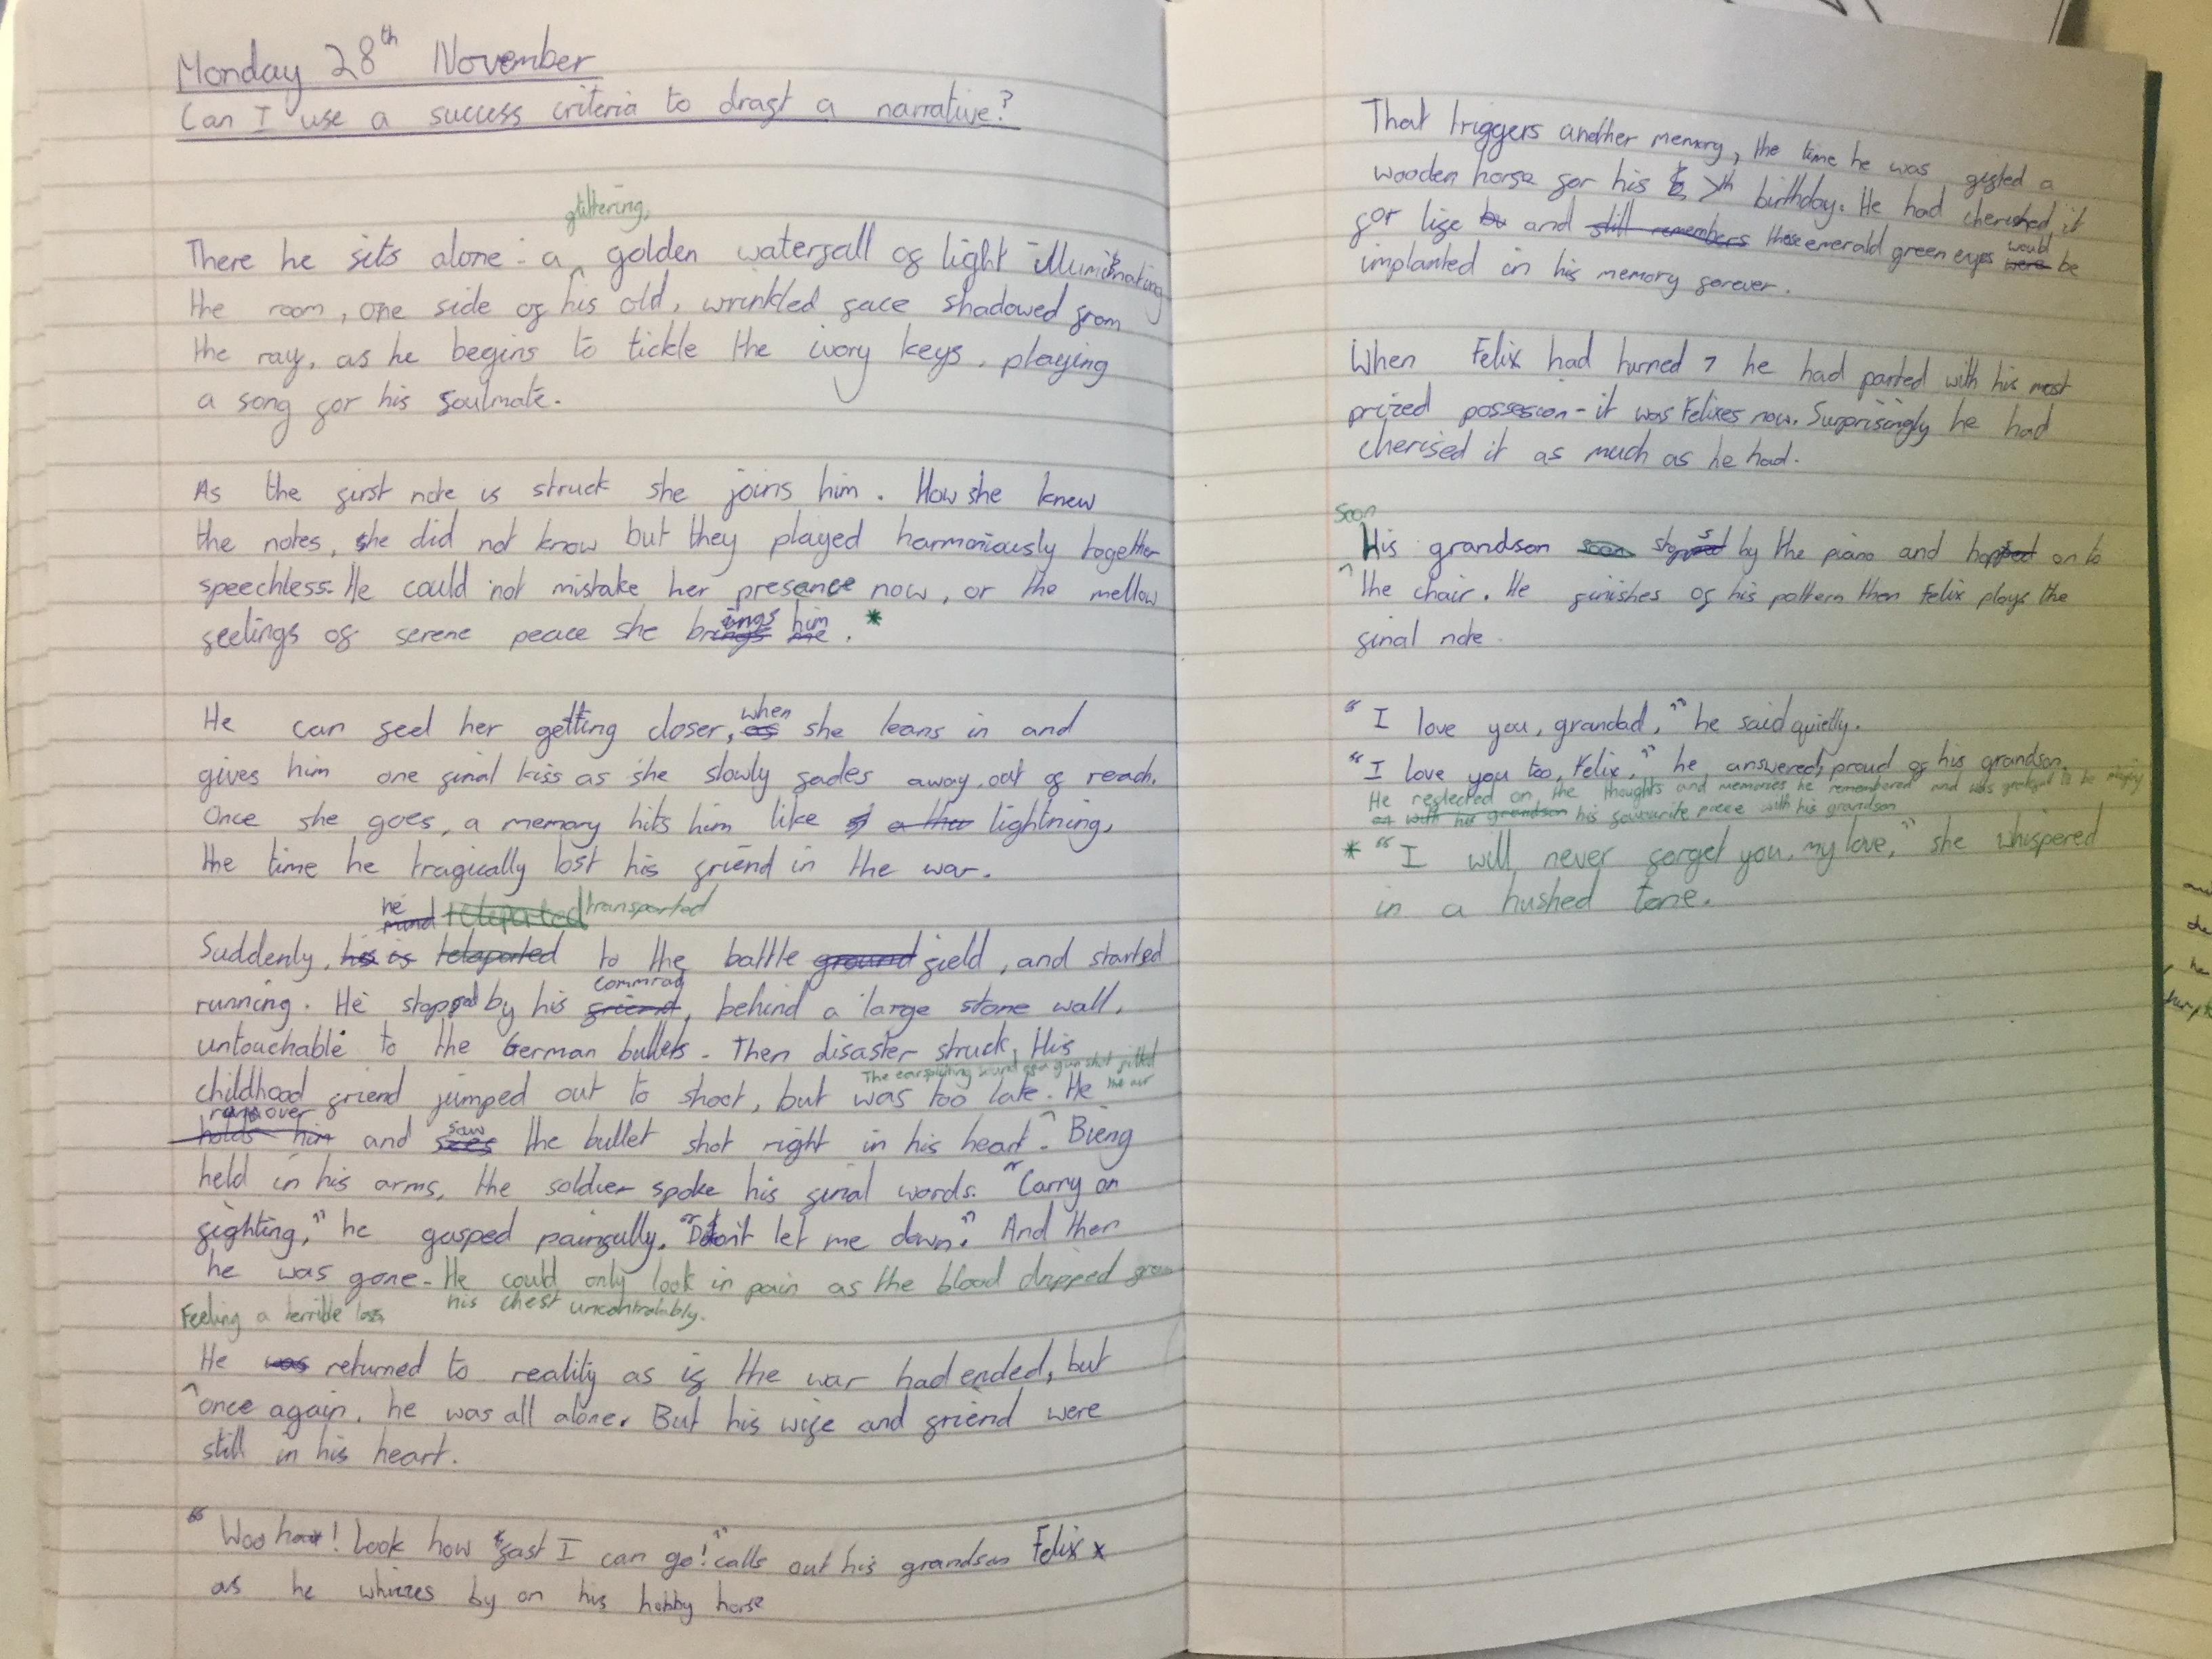 Monday 28th November
Can I use a success criteria to draft a narrative?
glittering,
There he sits alone : a golden waterfall of light illuminating
the room, one side of his old, wrinkled face shadowed from
the ray, as he begins to tickle the ivory keys, playing
a song for his soulmate.
As the first note is struck she joins him. How she knew
the notes, she did not know but they played harmoniously together
speechless. He could not mistake her presence now, or the mellow
ings him
feelings of serene peace she brings me. *
when
He can feel her getting closer, as she leans in and
gives him one final kiss as she slowly fades away, out of reach.
Once she goes, a memory hits him like lightning,
the time he tragically lost his friend in the war.
he
mind teleported transported
Suddenly, his is teleported to the battle ground field, and started
commrad
running. He stopped by his friend, behind a large stone wall,
untouchable to the German bullets. Then disaster struck. His
The earsplitting sound of a gun shot filled
the air
childhood friend jumped out to shoot, but was too late. He
ran over saw
holds him and sees the bullet shot right in his heart. Bieng
held in his arms, the soldier spoke his final words. "Carry on
fighting," he gasped painfully. "Don't let me down." And then
he was gone. He could only look in pain as the blood dripped from
his chest uncontrolably.
Feeling a terrible loss,
He was returned to reality as if the war had ended, but
once again, he was all alone. But his wife and friend were
still in his heart.
"Woo ! Look how fast I can go!" calls out his grandson Felix x
as he whizzes by on his hobby horse
That triggers another memory, the time he was gifted a
wooden horse for his 7th birthday. He had cherished it
for life and still remembers those emerald green eyes were be
would
implanted in his memory forever.
When Felix had turned 7 he had parted with his most
prized possesion - it was Felixes now. Surprisingly he had
cherised it as much as he had.
Soon
His grandson soon stopped by the piano and hopped on to
the chair. He finishes of his pattern then Felix plays the
final note.
"I love you, grandad," he said quietly.
"I love you too, Felix," he answered, proud of his grandson.
He reflected on the thoughts and memories he remembered and was grateful to be playing
with his grandson his favourite piece with his grandson
* "I will never forget you, my love," she whispered
in a hushed tone.